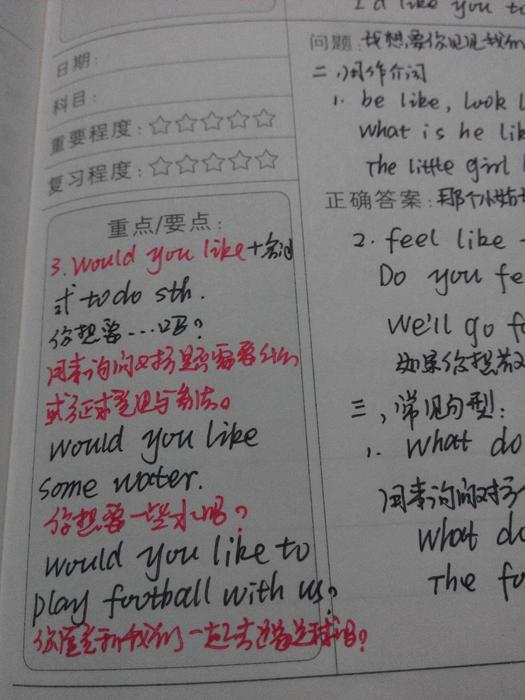 日期:
科目:
重要程度:☆☆☆☆☆
复习程度:☆☆☆☆☆
重点/要点:
3. Would you like + 名词
或 to do sth.
你想要...吗?
用来询问对方是否需要什么
或征求意见与看法。
would you like
some water.
你想要一些水吗?
would you like to
play football with us?
你愿意和我们一起去踢足球吗?
I'd like you to
问题:我想要你见见我的
二、用作介词
1. be like, look l
What is he like
The little girl l
正确答案:那个小姑
2. feel like
Do you fe
We'll go fo
如果你想
三、常见句型:
1. What do
用来询问对方
What do
The fo